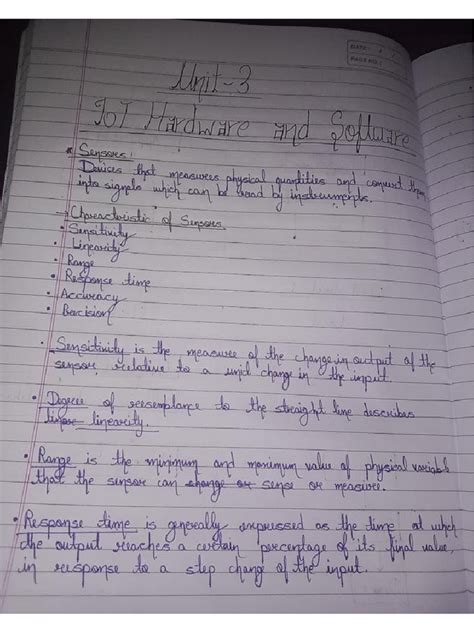 DATE: / /
PAGE NO.:
Unit-3
IoT Hardware and Software
* Sensors:
Devices that measures physical quantities and convert them
into signals which can be read by instruments.
→ Characteristic of Sensors
• Sensitivity
• Linearity
• Range
• Response time
• Accuracy
• Precision
• Sensitivity is the measure of the change in output of the
sensor relative to a unit change in the input.
• Degree of resemblance to the straight line describes
linear linearity.
• Range is the minimum and maximum value of physical variable
that the sensor can change or sense or measure.
• Response time is generally expressed as the time at which
the output reaches a certain percentage of its final value,
in response to a step change of the input.